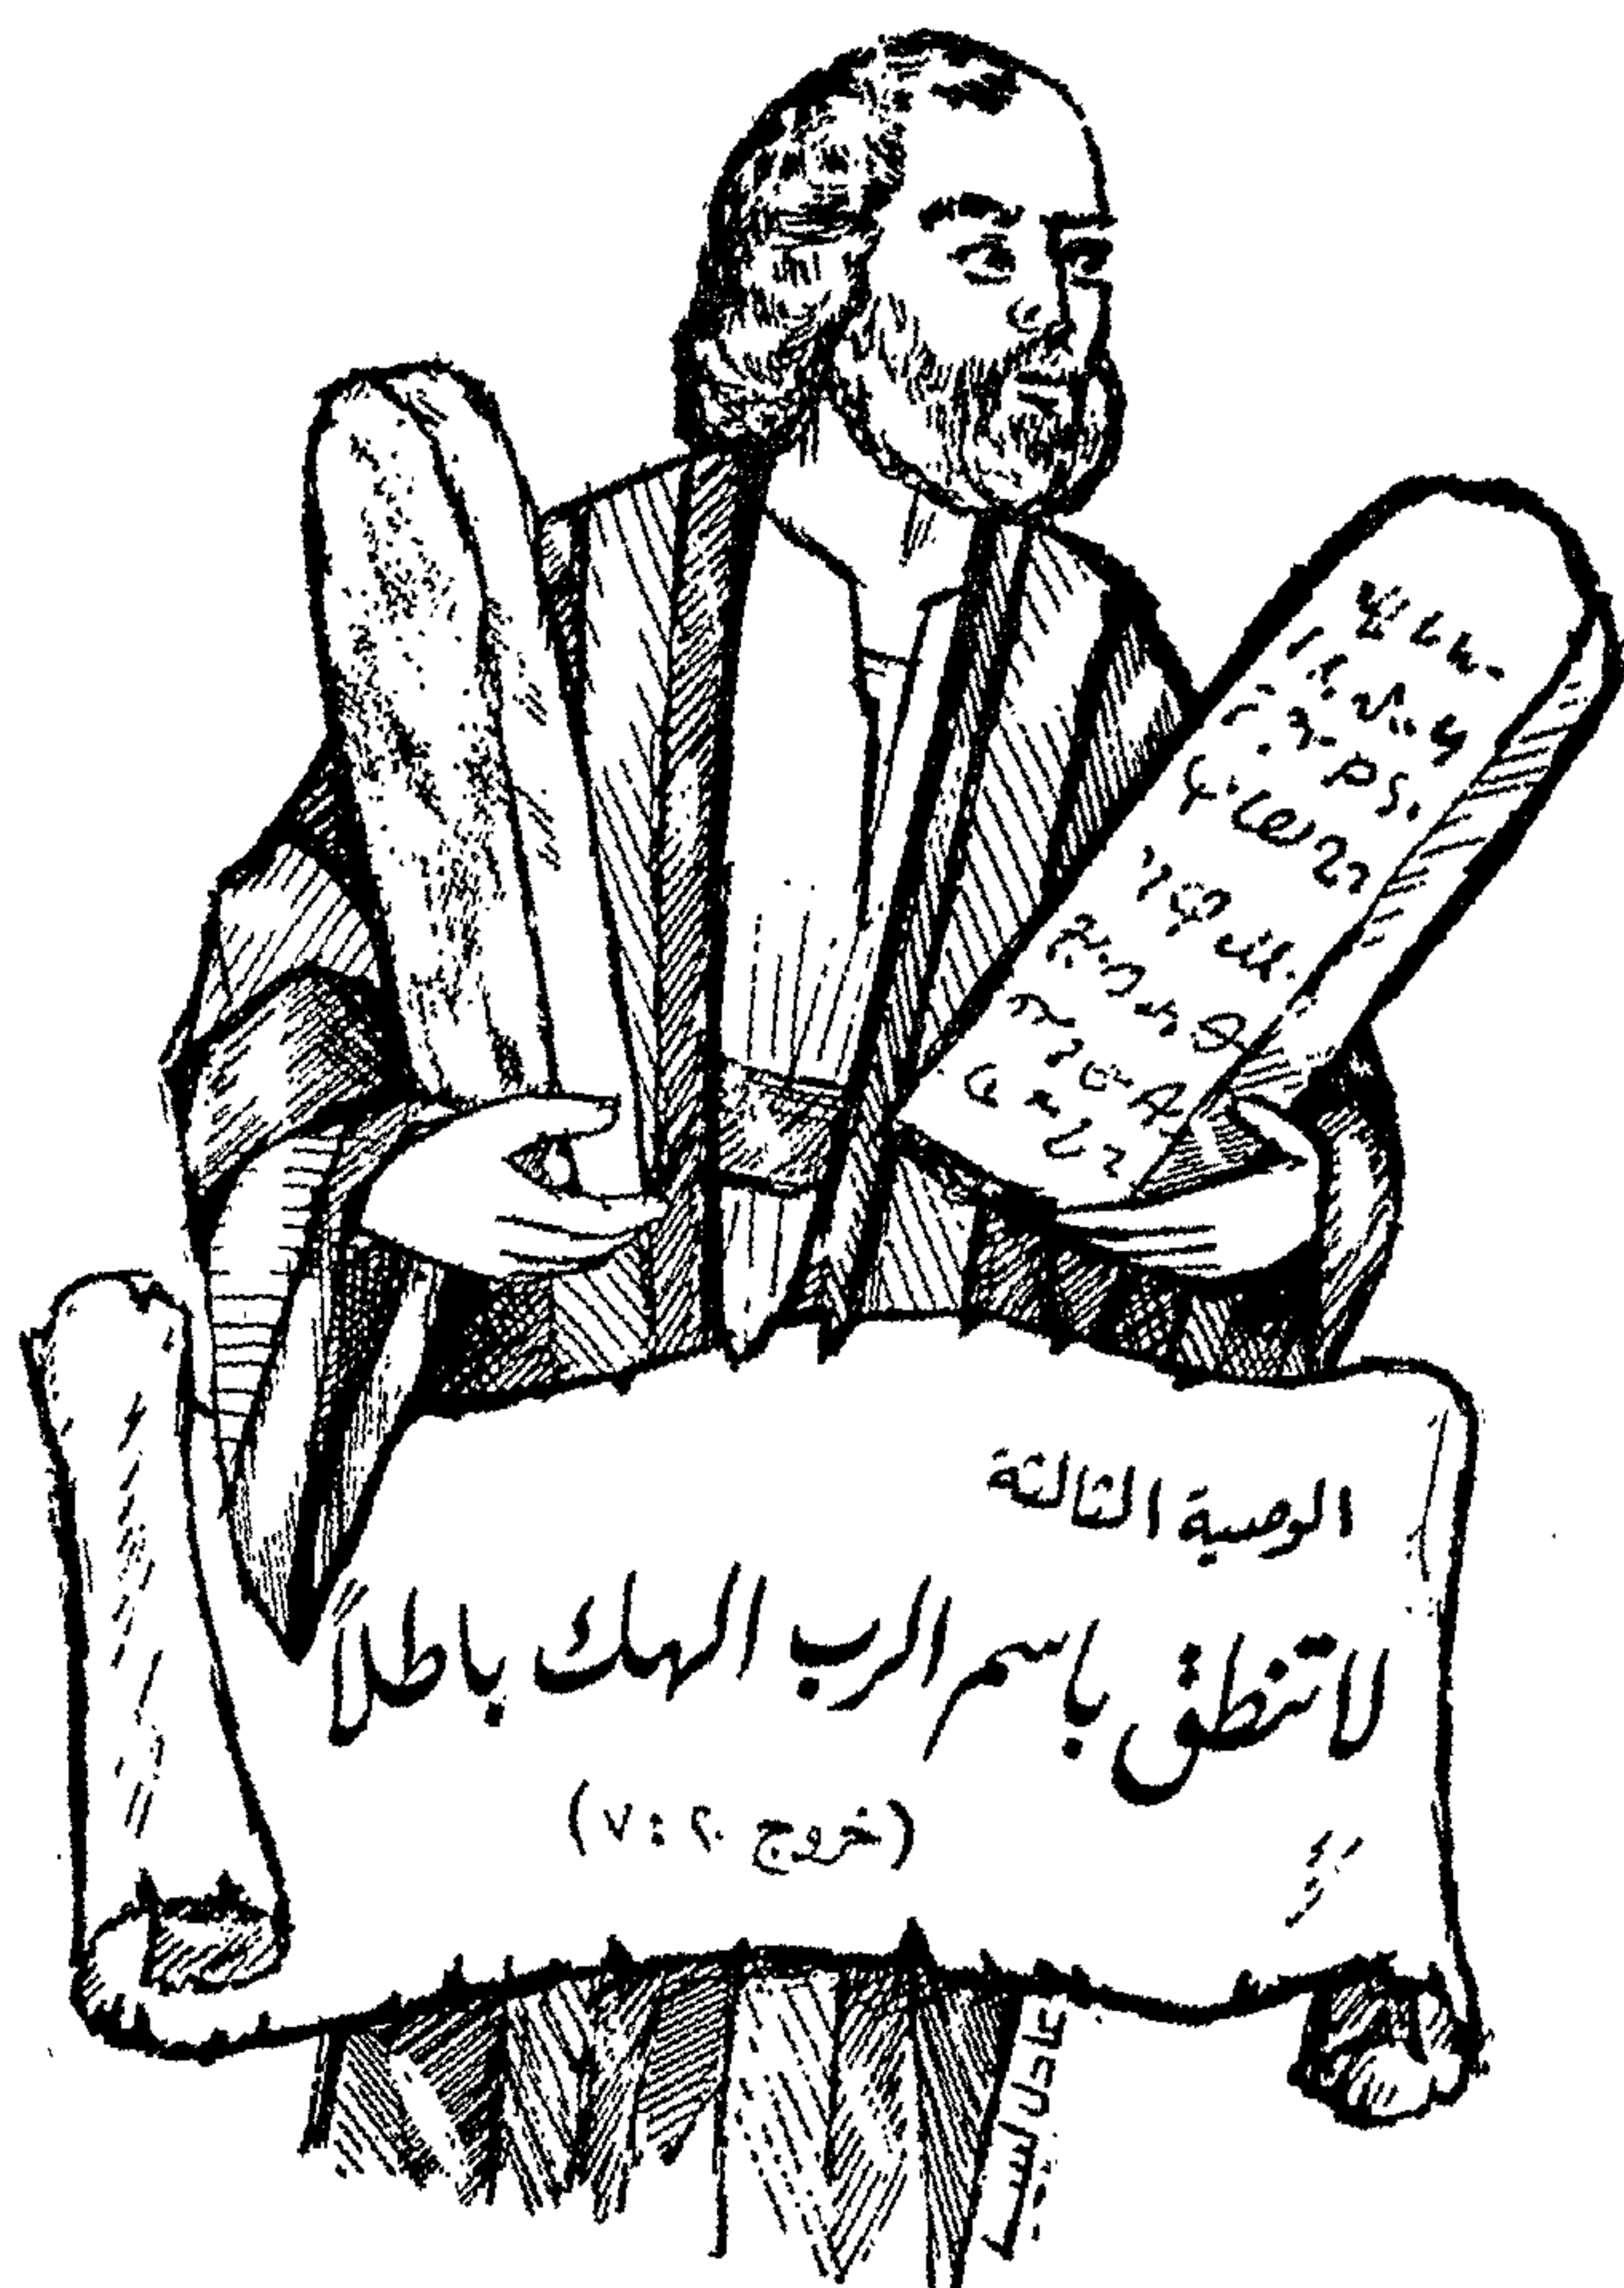 الوصية الثالثة
لا تنطق باسم الرب الهك باطلاً
(خروج ٢٠ : ٧)
عادل